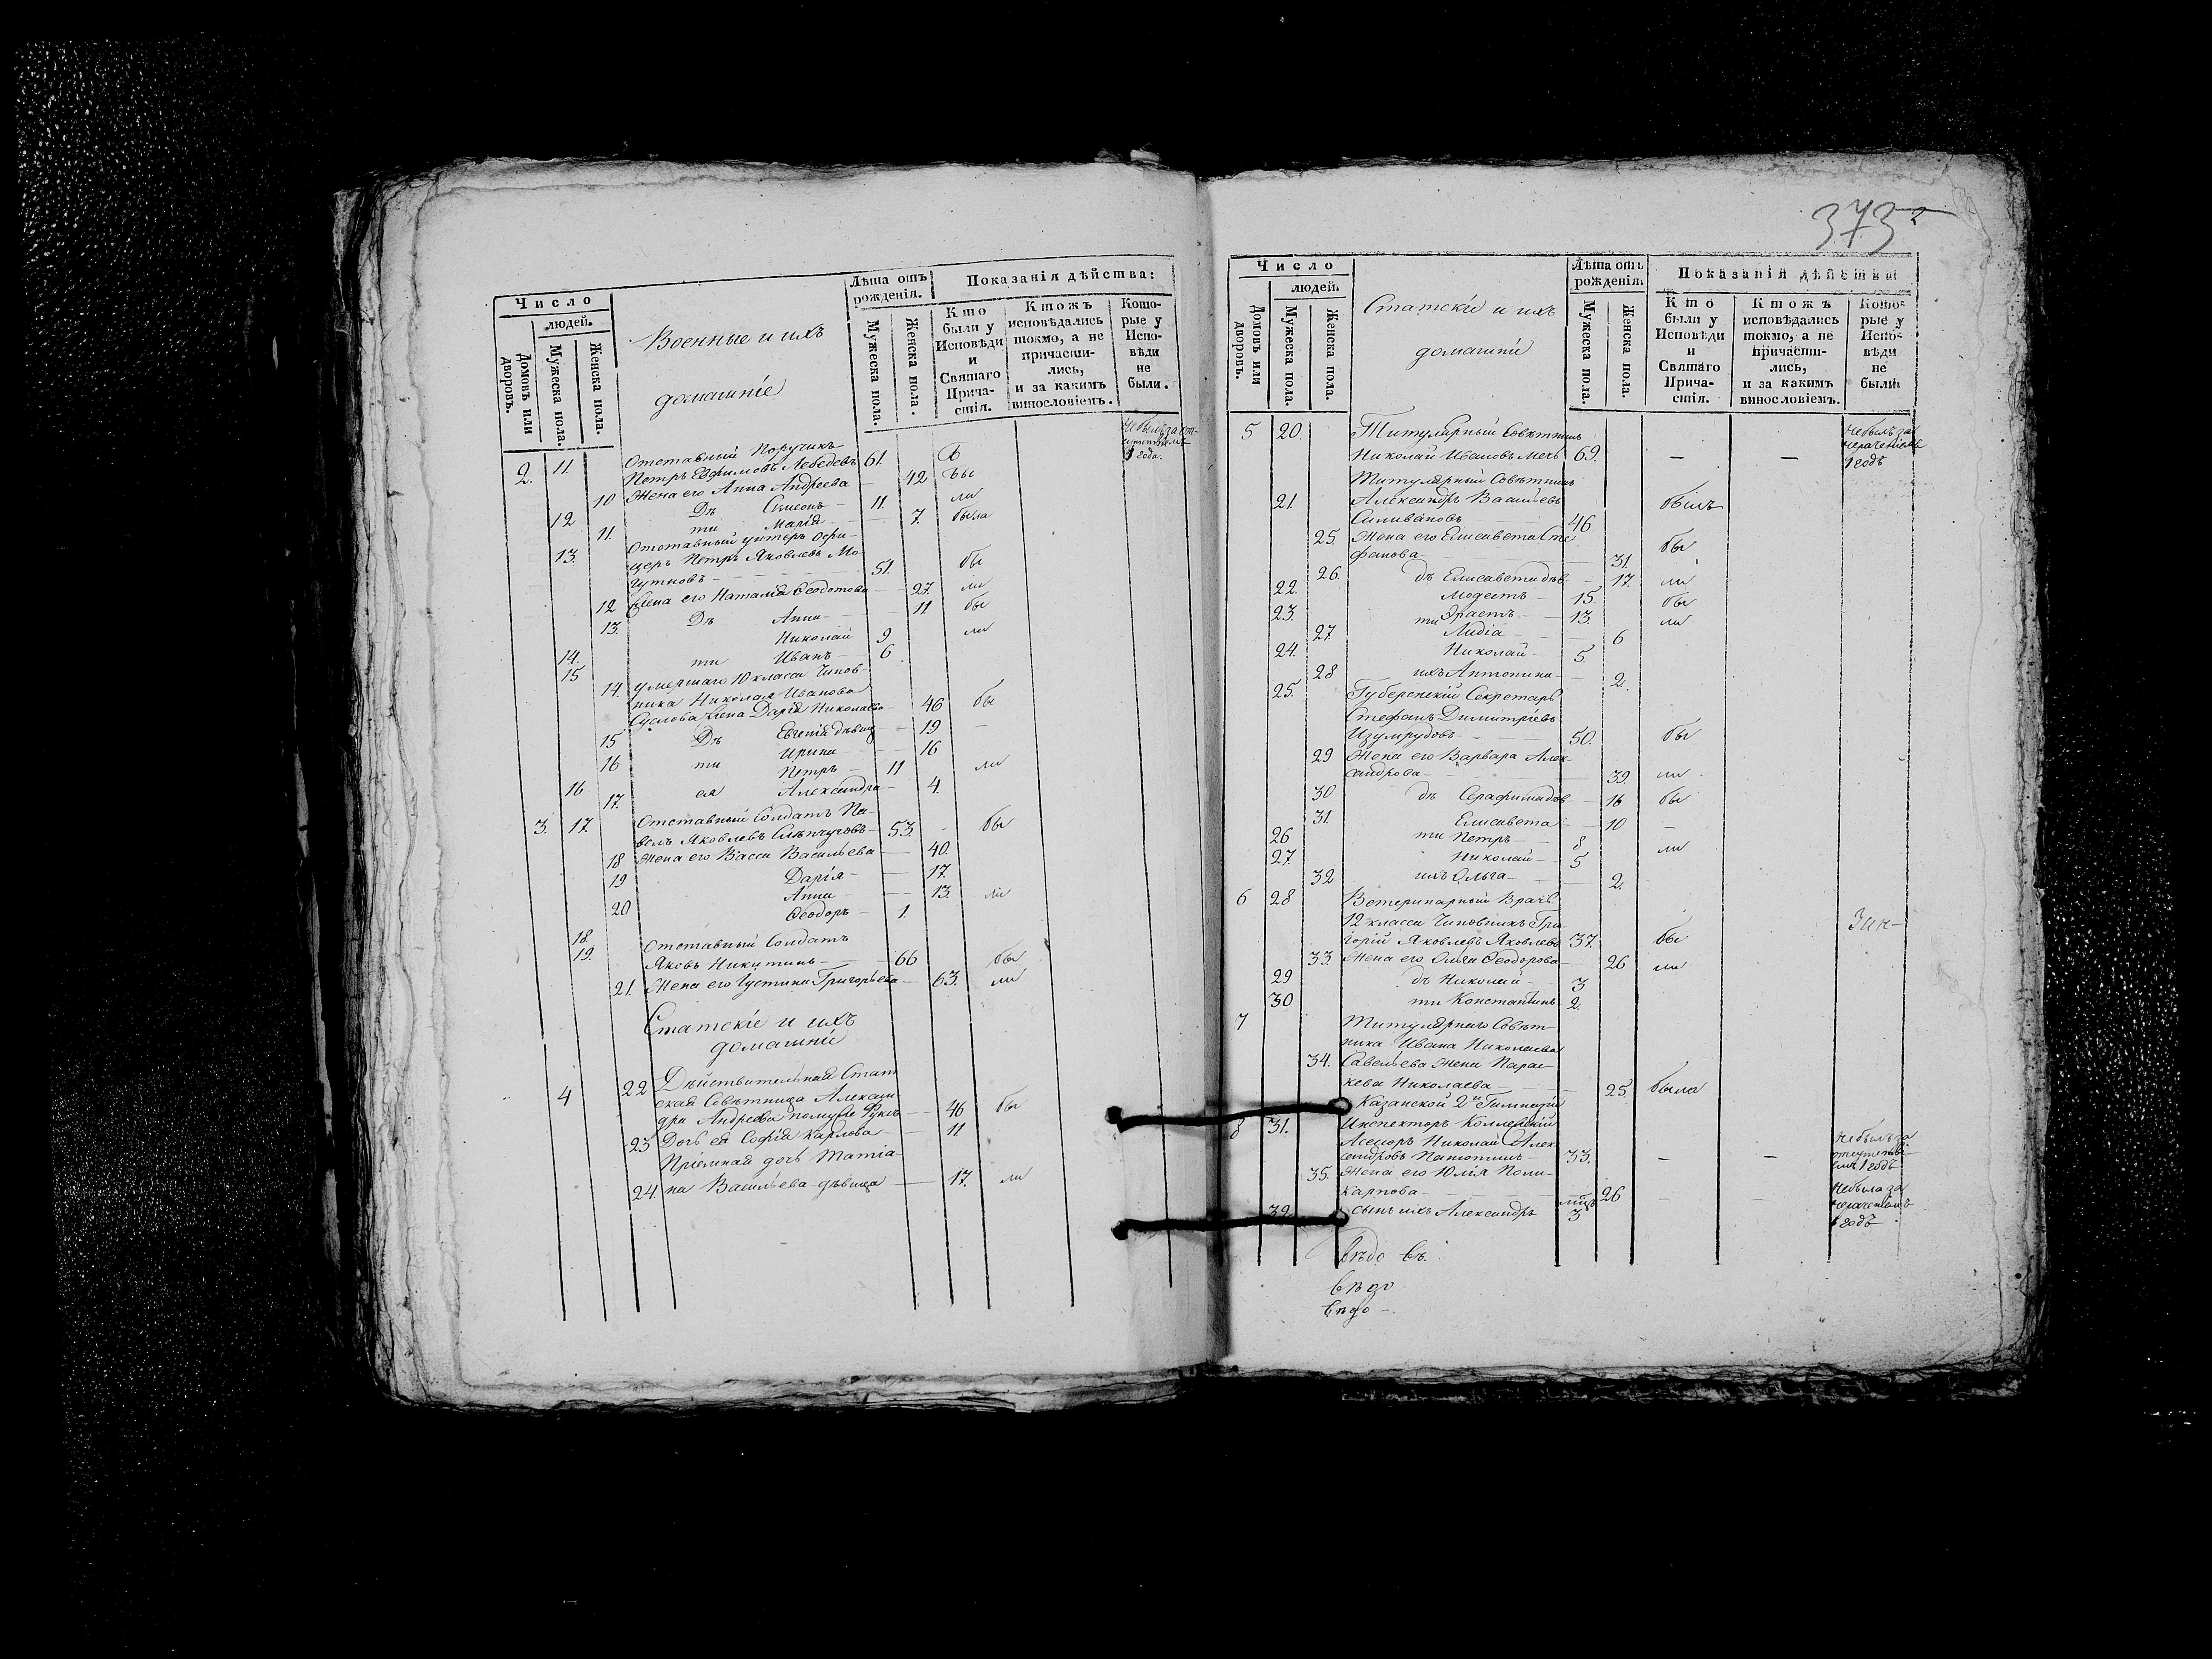 Число
людей.
Домовъ или дворовъ.
Мужеска пола.
Женска пола.
Военные и ихъ
домашніе
Лѣта отъ рожденія.
Мужеска пола.
Женска пола.
Показанія дѣйства:
Кто были у Исповѣди и Святаго Прича-стія.
Ктожъ исповѣдались токмо, а не причасти-лись, и за какимъ винословіемъ.
Кото-рые у Испо-вѣди не были.
Отставный Поручикъ
2. 11. Петръ Евфимовъ Лебедевъ 61. Не былъ за 1 года.
10 Жена его Анна Андреева 42
12 Дѣ Симеонъ 11. ли
11. ти Марія 7. была
Отставный унтеръ Офи-
13. церъ Петръ Яковлевъ Мо-
51. бы
12 Жена его Наталія Ѳеодотова 27. ли
13. Дѣ Анна 11 бы
14. Николай 9 ли
15 ти Иванъ 6
умершаго 10 класса Чинов-
ника Николая Иванова
14. Суслова Жена Дарія Николаева 46 бы
15 Дѣ Евгенія дѣвица 19
16 ти Ирина 16
16 Петръ 11 ли
17. ея Александра 4.
Отставный Солдатъ Па-
3. 17. велъ Яковлевъ 53 бы
18 Жена его Васса Васильева 40.
19 Дарія 17.
20 Анна 13. ли
18. Ѳеодоръ 1.
Отставный Солдатъ
19. Яковъ Никитинъ 66 бы
21. Жена его Густина Григорьева 63. ли
Статскіе и ихъ
домашніи
4 22 Дѣйствительная Стат
ская Совѣтница Алексан
дра Андреева помужѣ Фуксъ 46 бы
23 Дочь ея Софія Карлова 11
Пріемная дочь Татіа-
24. на Васильева дѣвица 17. ли
373
Число
людей.
Домовъ или дворовъ.
Мужеска пола.
Женска пола.
Статскіе и ихъ
домашніи
Лѣта отъ рожденія.
Мужеска пола.
Женска пола.
Показанія дѣйства:
Кто были у Исповѣди и Святаго Прича-стія.
Ктожъ исповѣдались токмо, а не причасти-лись, и за какимъ винословіемъ.
Кото-рые у Испо-вѣди не были
5 20. Титулярный Совѣтникъ
Николай Ивановъ Мечь 69. Не былъ за нераченіемъ 1 годъ
Титулярный Совѣтникъ
21. Александръ Васильевъ былъ
Силивановъ 46
25. Жена его Елисавета Сте
фанова 31. бы
26. дѣ Елисавета дѣв. 17. ли
22. Модестъ 15. бы
23. ти Эрастъ 13. ли
27. Лидіа 6
24. Николай 5.
28 ихъ Антонина 2.
25. Губернскій Секретарь
Стефанъ Димитріевъ
Изумрудовъ 50. бы
29 Жена его Варвара Алек-
сандрова 39 ли
30 дѣ Серафима дѣв. 16 бы
31. Елисавета 10
26 ти Петръ 8 ли
27. Николай 5
32 ихъ Ольга 2.
6 28 Ветеринарный Врачъ
12 класса Чиновникъ Гри-
горій Яковлевъ Яковлевъ 37. бы
33. Жена его Ольга Ѳеодорова 26 ли
29 дѣ Николай 3
30 ти Константинъ 2.
7 Титулярнаго Совѣт-
ника Ивана Николаева
34. Савельева Жена Парас-
кева Николаева 25. была
Казанской 2й Гимназіи
8 31. Инспекторъ Коллежскій
Асесоръ Николай Алек
сандровъ 33. Не былъ за 1 годъ
35. Жена его Юлія Поли-
карпова 26 Небыла за нераченіемъ 1 годъ
32. сынъ ихъ Александръ 3